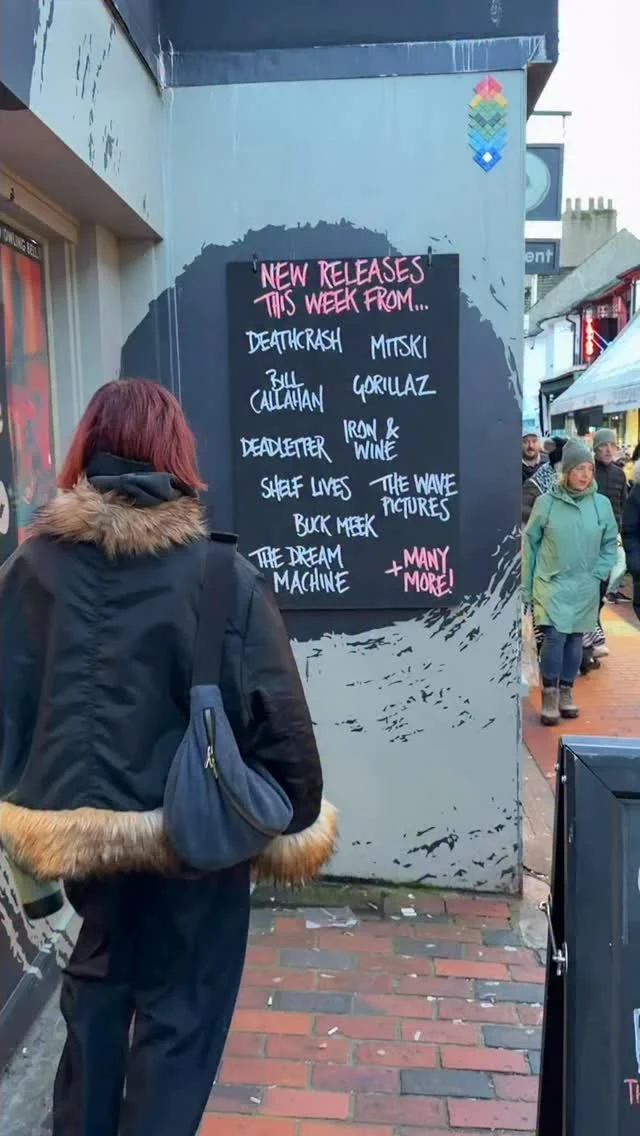 NEW RELEASES
THIS WEEK FROM...
DEATHCRASH
MITSKI
BILL
CALLAHAN
GORILLAZ
DEADLETTER
IRON &
WINE
SHELF LIVES
THE WAVE
PICTURES
BUCK MEEK
THE DREAM
MACHINE
+ MANY
MORE!
ent
OWLING BELL